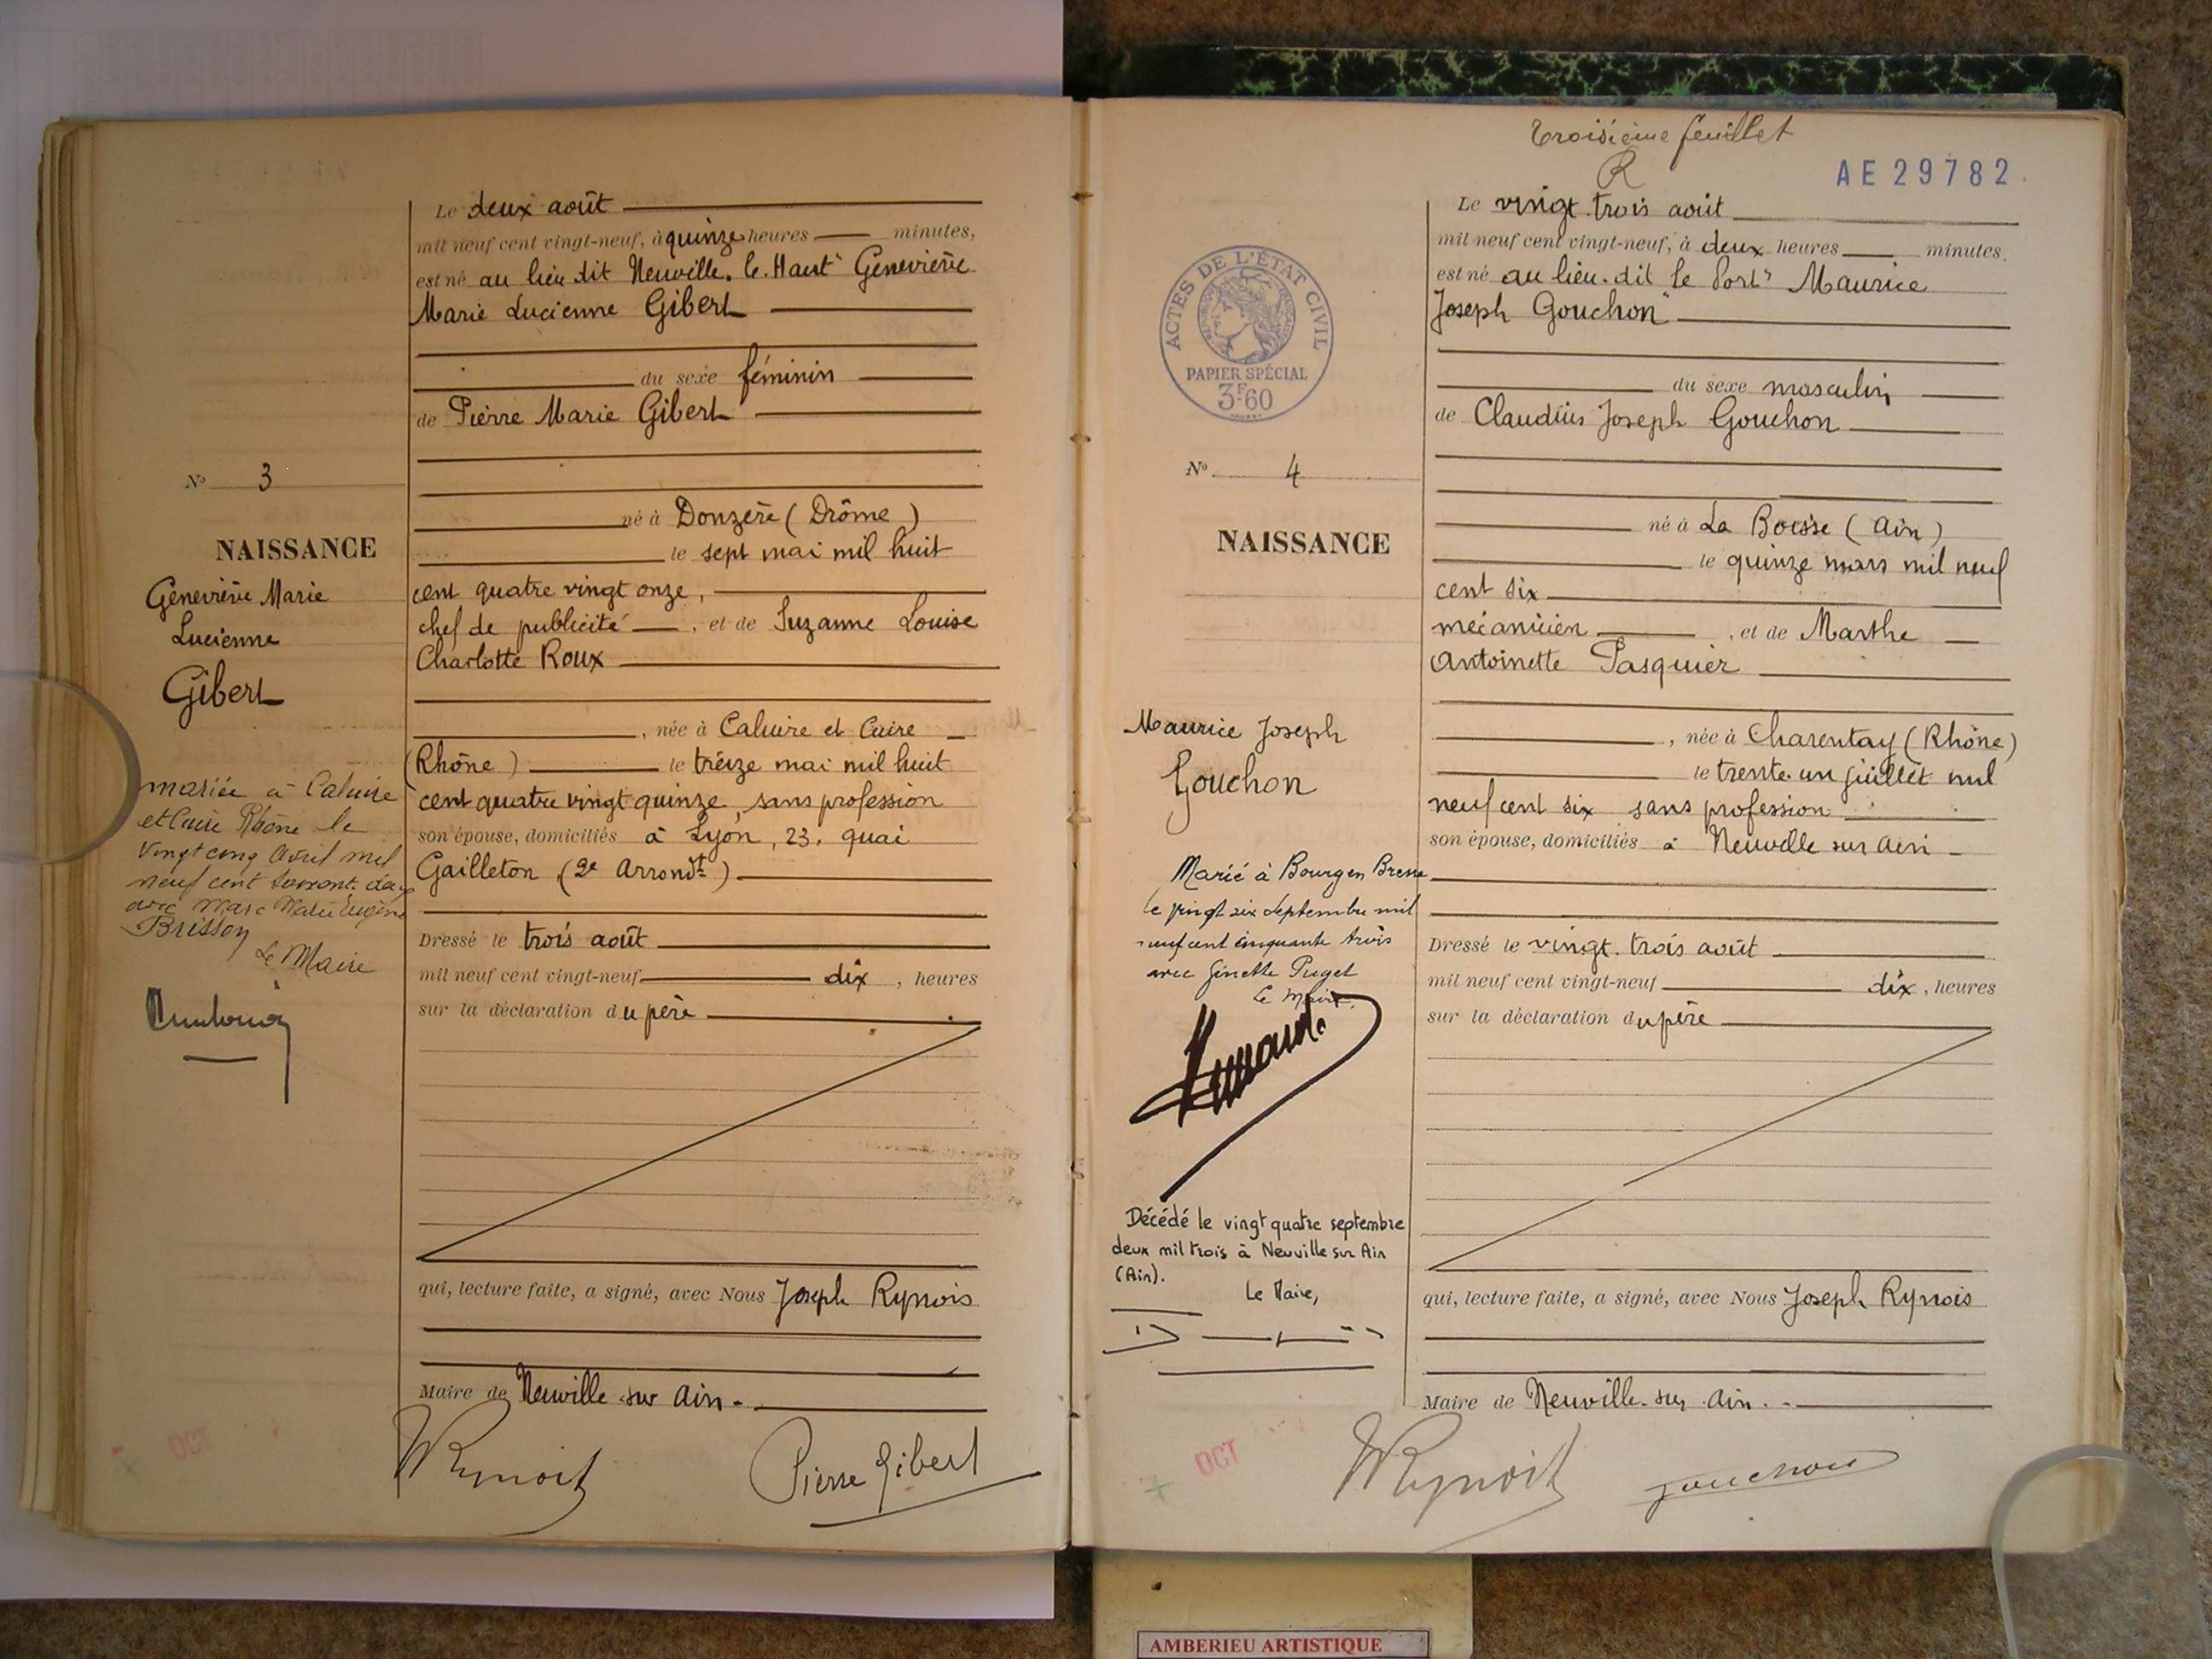 Le deux août
mil neuf cent vingt-neuf, à quinze heures minutes,
est né au lieu dit Neuville-le-Haut" Geneviève
Marie Lucienne Gibert
du sexe féminin
de Pierre Marie Gibert
né à Donzère (Drôme)
le sept mai mil huit
cent quatre vingt onze,
chef de publicité, et de Suzanne Louise
Charlotte Roux
, née à Caluire et Cuire
(Rhône) le treize mai mil huit
cent quatre vingt quinze, sans profession
son épouse, domiciliés à Lyon, 23, quai
Gailleton, (2e Arrondt)
Dressé le trois août
mil neuf cent vingt-neuf dix, heures
sur la déclaration du père
qui, lecture faite, a signé, avec Nous Joseph Rynois
Maire de Neuville-sur-Ain.
Pierre Gibert
N° 3
NAISSANCE
Geneviève Marie
Lucienne
Gibert
mariée à Caluire
et Cuire Rhône le
vingt cinq Avril mil
neuf cent
avec Marc Marie Eugène
Brisson
Le Maire
Troisième feuillet
R
AE 29782
Le vingt-trois août
mil neuf cent vingt-neuf, à deux heures minutes.
est né au lieu-dit le Port" Maurice
Joseph Gouchon
du sexe masculin
de Claudius Joseph Gouchon
né à La Boisse (Ain)
le quinze mars mil neuf
cent six
mécanicien, et de Marthe
Antoinette Pasquier
, née à Charentay (Rhône)
le trente-un juillet mil
neuf cent six sans profession
son épouse, domiciliés à Neuville sur Ain
Dressé le vingt-trois août
mil neuf cent vingt-neuf dix, heures
sur la déclaration du père
qui, lecture faite, a signé, avec Nous Joseph Rynois
Maire de Neuville-sur-Ain.
Gouchon
ACTES DE L'ÉTAT CIVIL
PAPIER SPÉCIAL
3F60
N° 4
NAISSANCE
Maurice Joseph
Gouchon
Marié à Bourg en Bresse
le vingt six septembre mil
neuf cent cinquante trois
avec Ginette Puget
Le Maire,
Décédé le vingt quatre septembre
deux mil trois à Neuville sur Ain
(Ain).
Le Maire,
OCT
OCT
AMBERIEU ARTISTIQUE